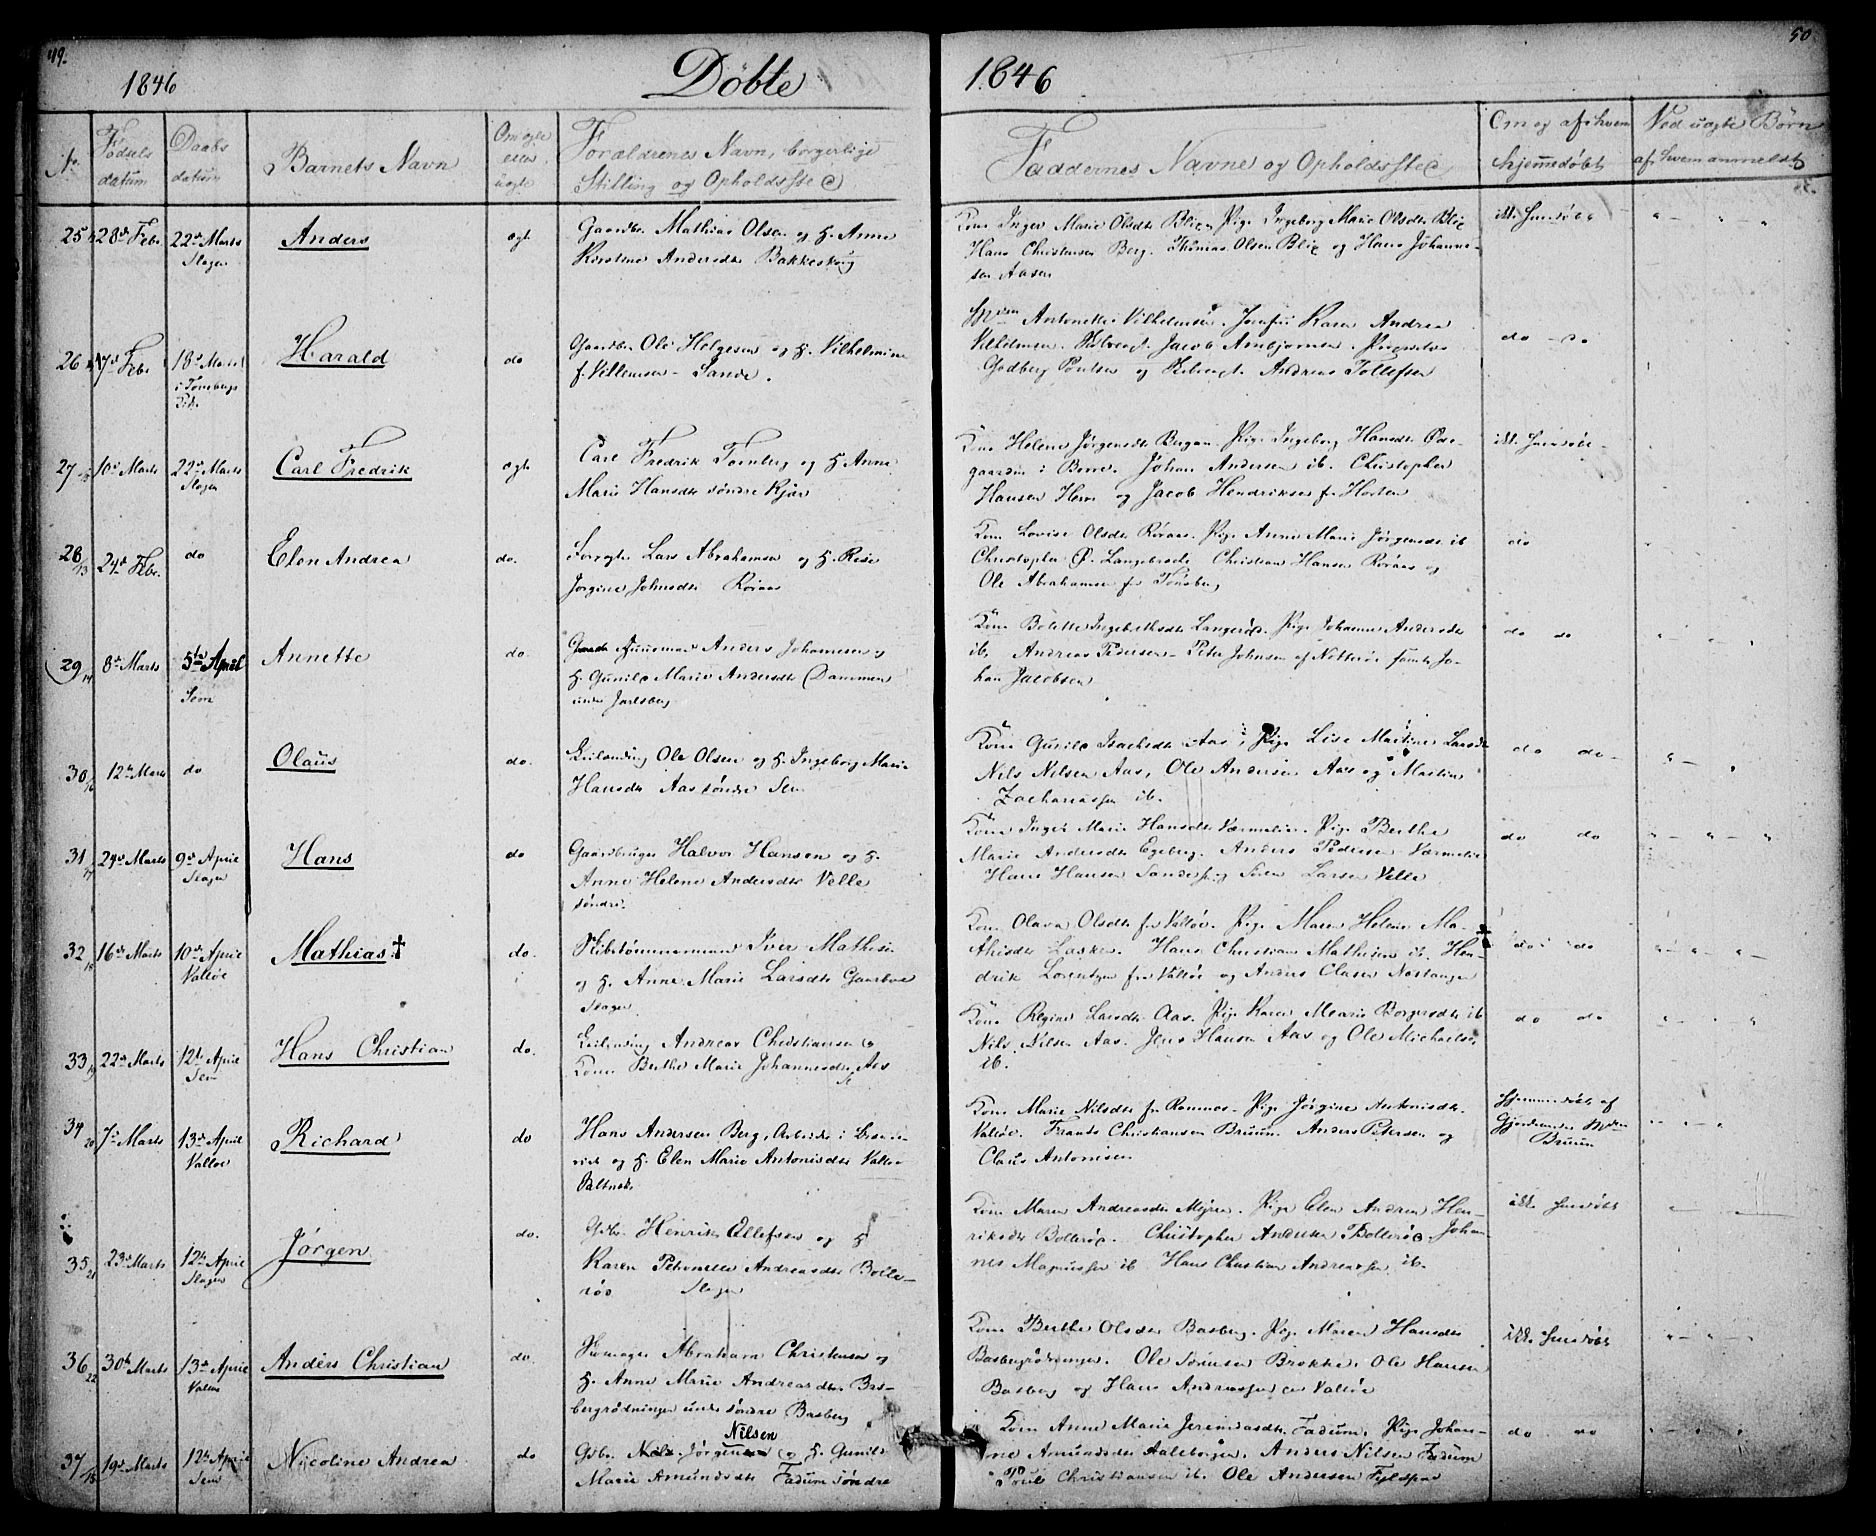 49.
1846 Døbte 1846
50
N. Fødsels datum Daabs datum Barnets Navn Om ægte eller uægte Forældrenes Navn, borgerlige Stilling og Opholdssted Faddernes Navne og Opholdssted Om og af hvem hjemmedøbt Ved uægte Børn af hvem anmeldt
25 28de Febr 22de Marts Slagen Anders ægte
Gaardbr. Mathias Olsen og H. Anne
Kirstine Andersdtr Bakkeskoug
Kone Inger Marie Olsdtr Blix, Pige Ingeborg Marie Olsdtr Blix
Hans Christensen Berg. Thomas Olsen Blix og Hans Johanne-
sen Aasen
ikke hjemdøbt
26 7de Febr 18de Marts i Tønsbergs Harald do
Gaardbr. Ole Helgesen og H. Vilhelmine
f. Villemsen - Sande.
Antonette Vilhelmsen. Jomfru Karen Andrea
Vilhelmsen. Jacob Arnbjørnsen.
Godberg Poulsen og Andreas Tollefsen
do - do
27 10de Marts 22de Marts Slagen Carl Fredrik ægte
Carl Fredrik Tornberg og H. Anne
Marie Hansdtr søndre Kjær
Kone Helene Jørgensdtr Bergan. Pige Ingeborg Hansdtr Øde-
gaarden i Borre. Johan Andersen ib. Christopher
Hansen og Jacob Hendriksen fr Horten
ikke hjemdøbt
28/13 24de Febr. do Elen Andrea do.
Lars Abrahamsen og H.
Jørgine Johnsdtr Røraas
Kone Lovise Olsdtr Røraas. Pige Anne Marie Jørgensdtr ib
Christopher Ø. Langebrecke Christian Hansen Røraas og
Ole Abrahamsen fr Tønsberg
do
29/14 8de Marts 5te April Sem Annette do.
Huusmand Anders Johannesen og
H. Gunild Marie Andersdtr Dammen
under Jarlsberg
Kone Bolette Ingebrethsdtr Langerød. Pige Johanne Andersdtr
ib. Andreas Pedersen - Peter Johnsen af Nøtterøe samt Jo-
han Jacobsen
do do
30/16 12te Marts do Olaus do.
Ole Olsen og H. Ingeborg Marie
Hansdtr Aas søndre Sem
Kone Gunild Isachsdtr Aas, Pige Lise Martine Larsdtr
Nils Nilsen Aas, Ole Andersen Aas og Martin
Zachariassen ib.
do do -
31/17 24de Marts 9de April Slagen Hans do
Gaardbruger Halvor Hansen og H.
Anne Helene Andersdtr Velle
søndre.
Kone Inger Marie Hansdtr Værmelie. Pige Berthe
Marie Andersdtr Egeberg. Anders Pedersen Værmelie
Hans Hansen Sande og Søren Larsen Velle
do do
32/18 16de Marts 10de April Valløe Mathias † do.
Skibstømmermand Iver Mathisen
og H. Anne Marie Larsdtr Gaarboe
Slagen
Kone Olava Olsdtr fr Valløe. Pige Maren Helene Ma-
thisdtr. Hans Christian Mathisen ib. Hen-
drik Lorentzen fr Valløe og Anders Olasen Næstangen
do do
33/19 22de Marts 12te April Sem Hans Christian do.
Andreas Christiansen og
Kone Berthe Marie Johannesdtr Aas
Kone Regine Larsdtr Aas. Pige Karen Marie Borgersdtr ib
Nils Nilsen Aas. Jens Hansen Aas og Ole Michaelsen
ib.
do do
34/20 7de Marts 13de April Valløe Richard do
Hans Andersen Berg, Arbeider i
og H. Elen Marie Antonisdtr Valløe
Saltværk
Kone Marie Nilsdtr fr Ramnes. Pige Jørgine Antonisdtr
Valløe. Frants Christiansen Bruun. Anders Petersen og
Claus Antonisen
Hjemmedøbt af
Gjordemoder Mdm
Bruun
35/21 23de Marts 12te April Slagen Jørgen do.
Gbr. Henrik Ollefsen og H
Karen Petronelle Andreasdtr Bolle-
rød Slagen
Kone Maren Andreasdtr Mejren. Pige Elen Andrea Hen-
riksdtr Bollerød. Christopher Andersen Bollerød. Johan-
nes Magnussen ib Hans Christian Andreassen ib.
ikke hjemdøbt
36/22 30te Marts 13de April Valløe Anders Christian do.
Abraham Christensen og
H. Anne Marie Andreasdtr Bas-
bergrødningen under søndre Basberg
Kone Berthe Olsdtr Basberg. Pige Maren Hansdtr
Basbergrødningen. Ole Sørensen Brekke. Ole Hansen
Basberg og Hans Andreassen Valløe
ikke hjemdøbt
37/15 19de Marts 12te April Sem Nicoline Andrea do
Gbr. Nils Jørgensen Nilsen og H. Gunild
Marie Amundsdtr Fadum søndre
Kone Anne Marie Jeremiasdtr Fadum. Pige Johan-
ne Amundsdtr Aaleborgen. Anders Nilsen Fadum
Poul Christiansen ib. Ole Andersen Fyldpaa
do do